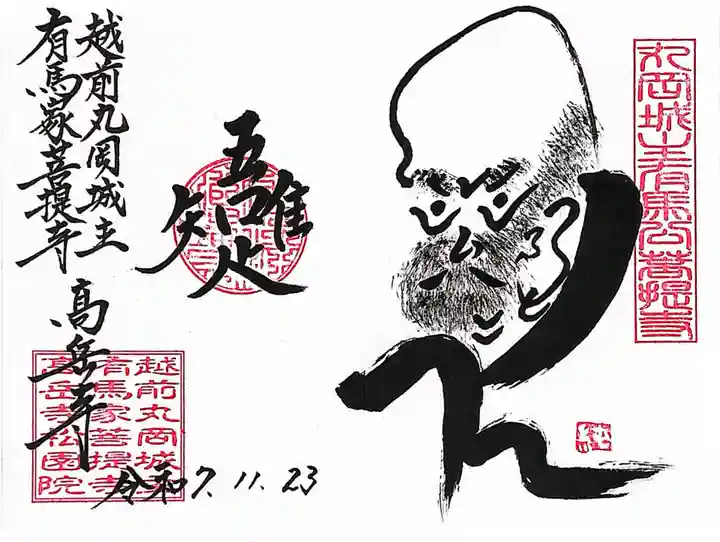 丸岡城主有馬公菩提寺
純
吾唯
知止
越前丸岡城主
有馬家菩提寺
高岳寺
越前丸岡城主
有馬家菩提寺
高岳寺松園院
令和7.11.23